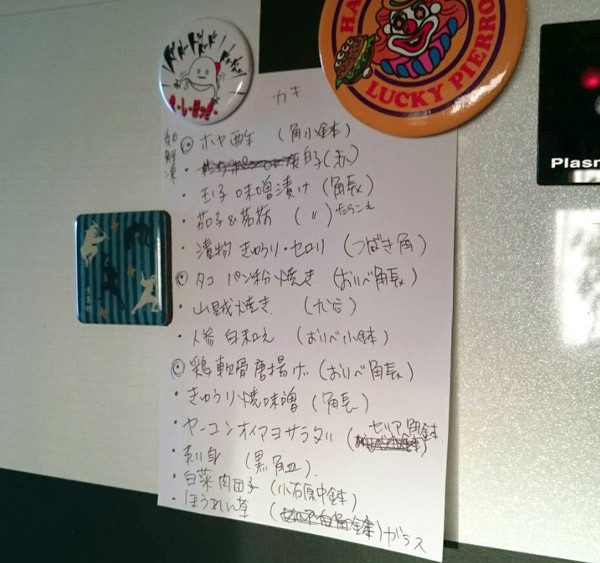 HA
LUCKY PIERRO
Plasm
カキ
解凍
◎ ホヤ酢 (角小鉢)
白子(赤)
・玉子味噌漬け (角長)
・茄子 (〃)
・漬物 きゅうり・セロリ (つばき角)
◎ タコ パン粉焼き (おりべ角長)
・山賊焼き (九谷)
・人参白和え (おりべ小鉢)
◎ 鶏軟骨唐揚げ (おりべ角長)
・きゅうり焼味噌 (角長)
・ヤーコンオイマヨサラダ (セリア角鉢
・刺身 (黒角皿)
・白菜肉団子 (小石原中鉢)
・ほうれん草 ( )ガラス